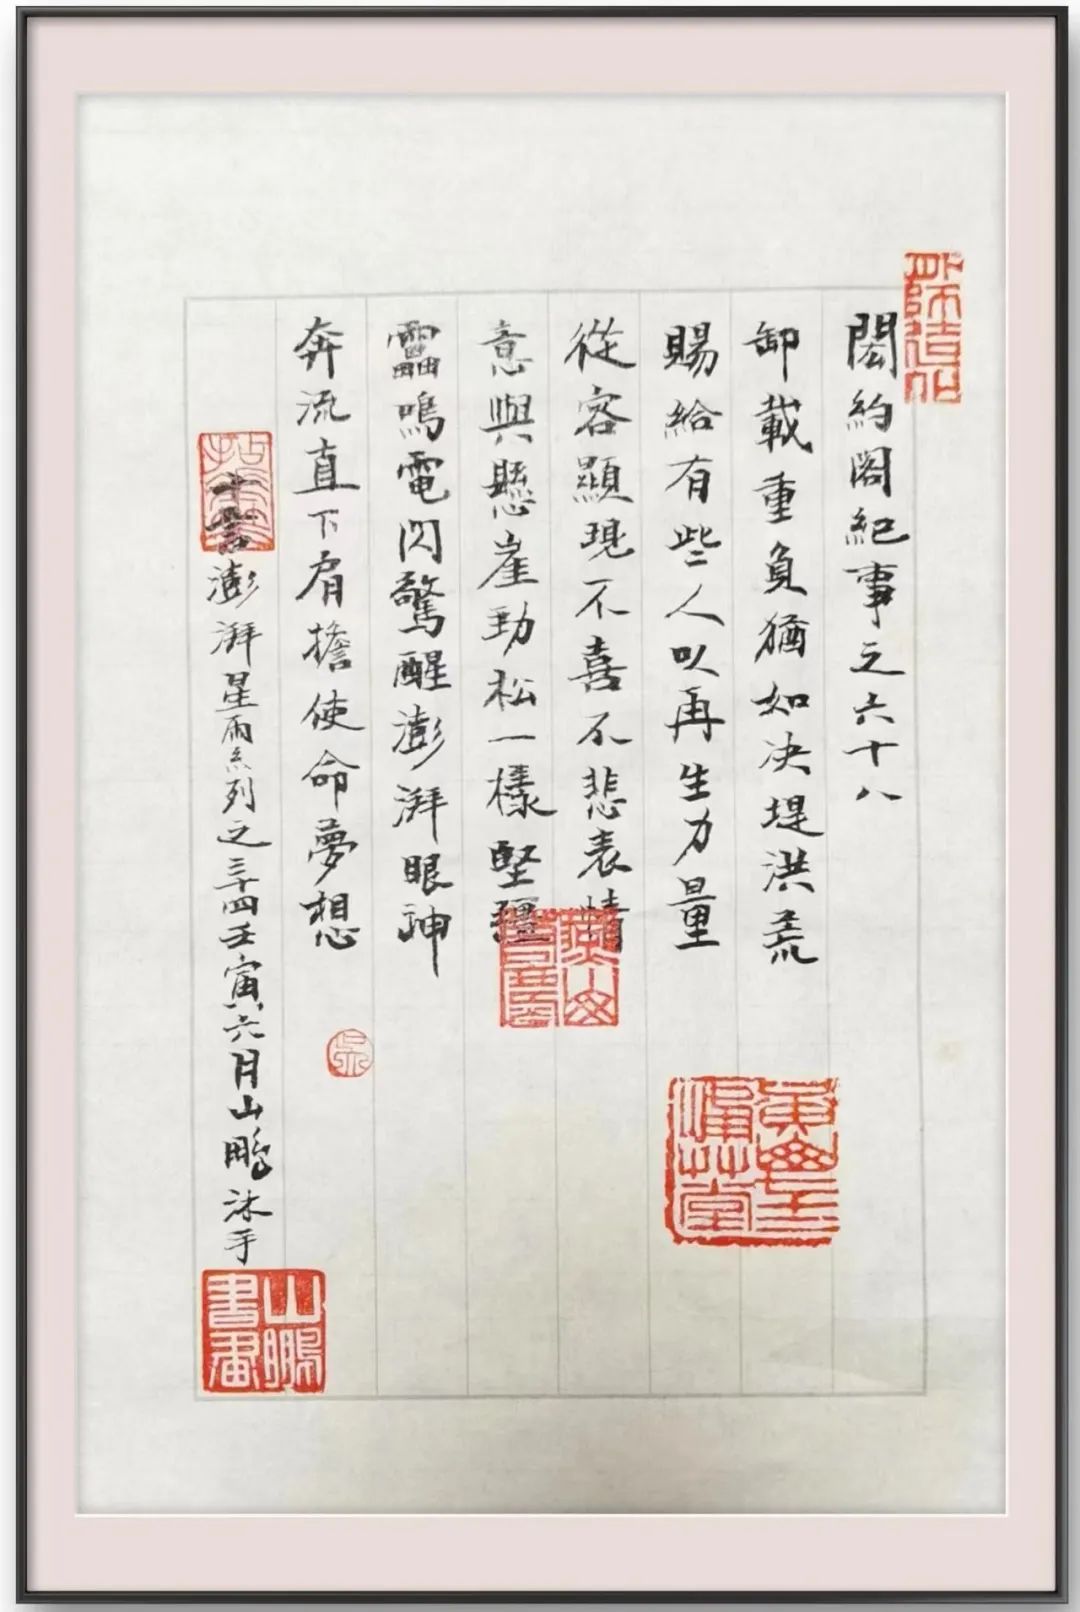 閎約閣紀事之六十八
卸載重負猶如决堤洪荒
賜給有些人以再生力量
從容顯現不喜不悲表情
意與懸崖勁松一樣堅彊
靁鳴電閃驚醒澎湃眼神
奔流直下肩擔使命夢想
十言澎湃星雨系列之三十四壬寅六月山鵬沐手
師造化
山鵬書畫